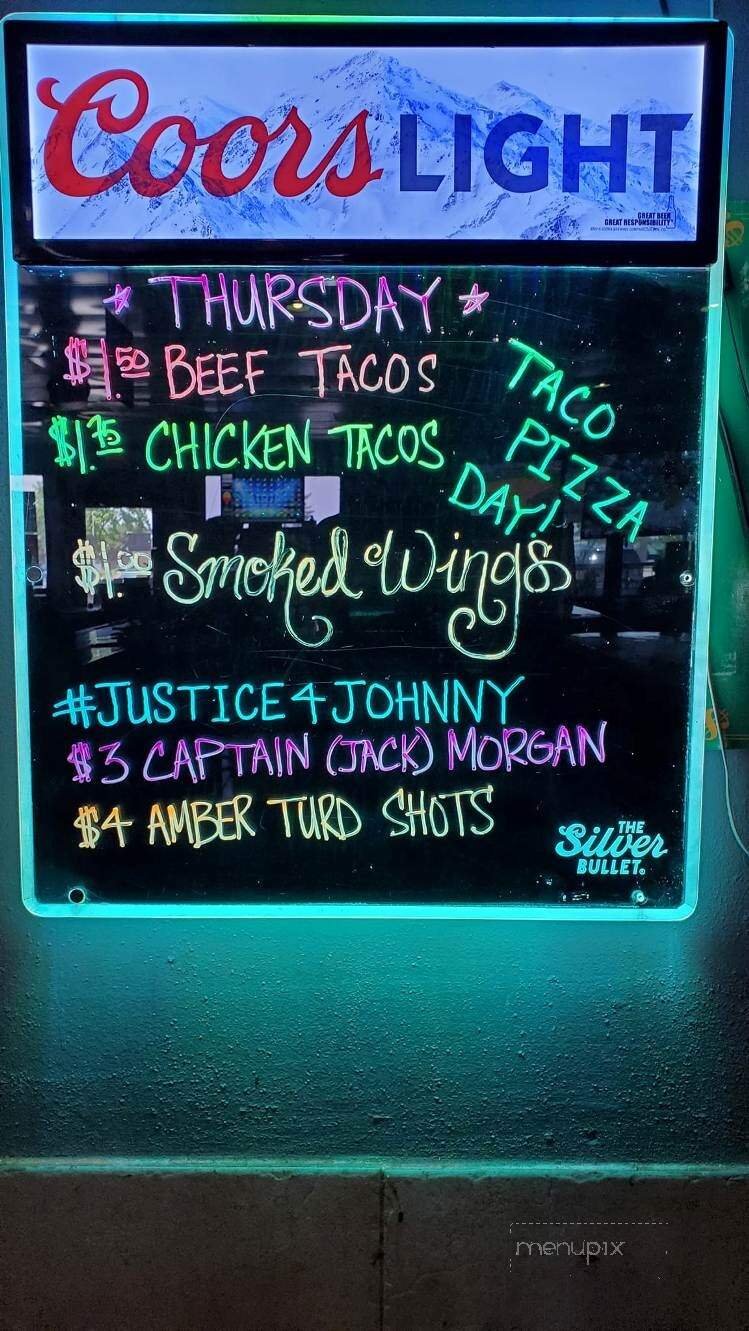 Coors LIGHT
GREAT BEER
GREAT RESPONSIBILITY
THURSDAY
$1.50 BEEF TACOS
$1.75 CHICKEN TACOS
TACO
PIZZA
DAY!
$1.00 Smoked Wings
#JUSTICE4JOHNNY
$3 CAPTAIN (JACK) MORGAN
$4 AMBER TURD SHOTS
THE
Silver
BULLET.
menupix